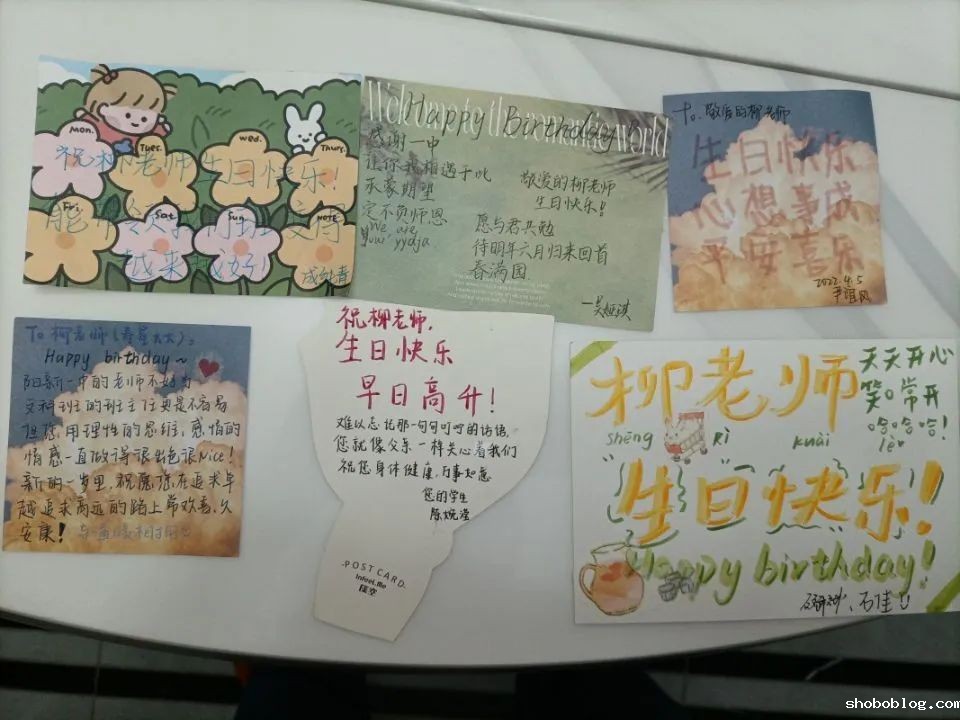 Mon.
Tues.
Wed.
Thurs.
祝柳老师生日快乐!
Fri.
Sat
Sun
NOTE
越来越好!
Welcome to the romantic world
Happy Birthday
感谢一中
让你我相遇于此
承蒙期望
定不负师恩
We are
your yydja.
敬爱的柳老师
生日快乐!
愿与君共勉
待明年六月归来回首
春满园.
—吴娅琪
to. 敬爱的柳老师
生日快乐
心想事成
平安喜乐
2022.4.5
To 柳老师(寿星大大):
Happy birthday~
阳新一中的老师不好当
文科班的班主任更是不容易
但您,用理性的思维,感情的
情感一直做得很出色很Nice!
新的一岁里,祝愿您在追求卓
越追求高远的路上常欢喜,久
安康!
祝柳老师,
生日快乐
早日高升!
难以忘记那一句句叮咛的话语,
您就像父亲一样关心着我们
祝您身体健康,万事如意
您的学生
·POSTCARD·
柳老师
天天开心
笑口常开
哈哈哈!
shēng rì kuài lè
生日快乐!
Happy birthday!
石佳
shoboblog.com